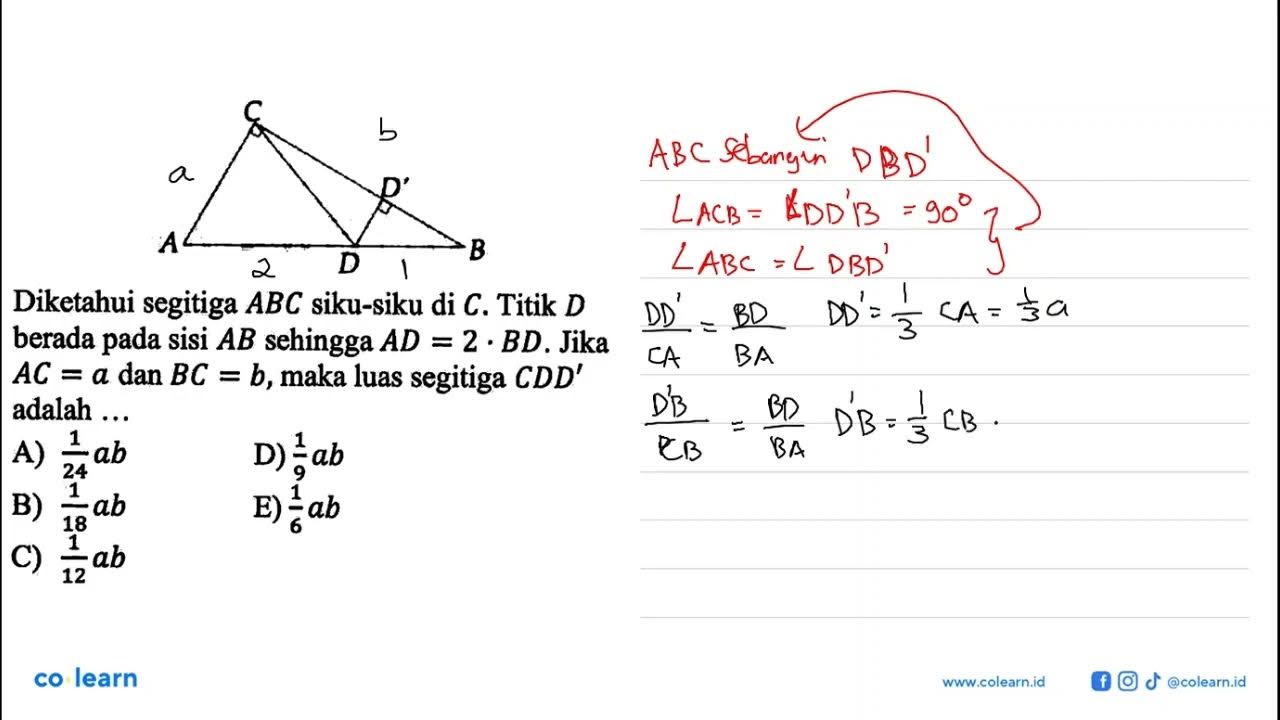 C
b
a
D'
A
D
B
2
1
Diketahui segitiga ABC siku-siku di C. Titik D
berada pada sisi AB sehingga AD = 2 · BD. Jika
AC = a dan BC = b, maka luas segitiga CDD'
adalah ...
A) 1/24 ab D) 1/9 ab
B) 1/18 ab E) 1/6 ab
C) 1/12 ab
ABC sebangun DBD'
∠ACB = ∠DD'B = 90°
∠ABC = ∠DBD'
DD'/CA = BD/BA DD' = 1/3 CA = 1/3 a
D'B/CB = BD/BA D'B = 1/3 CB .
co learn
www.colearn.id
@colearn.id